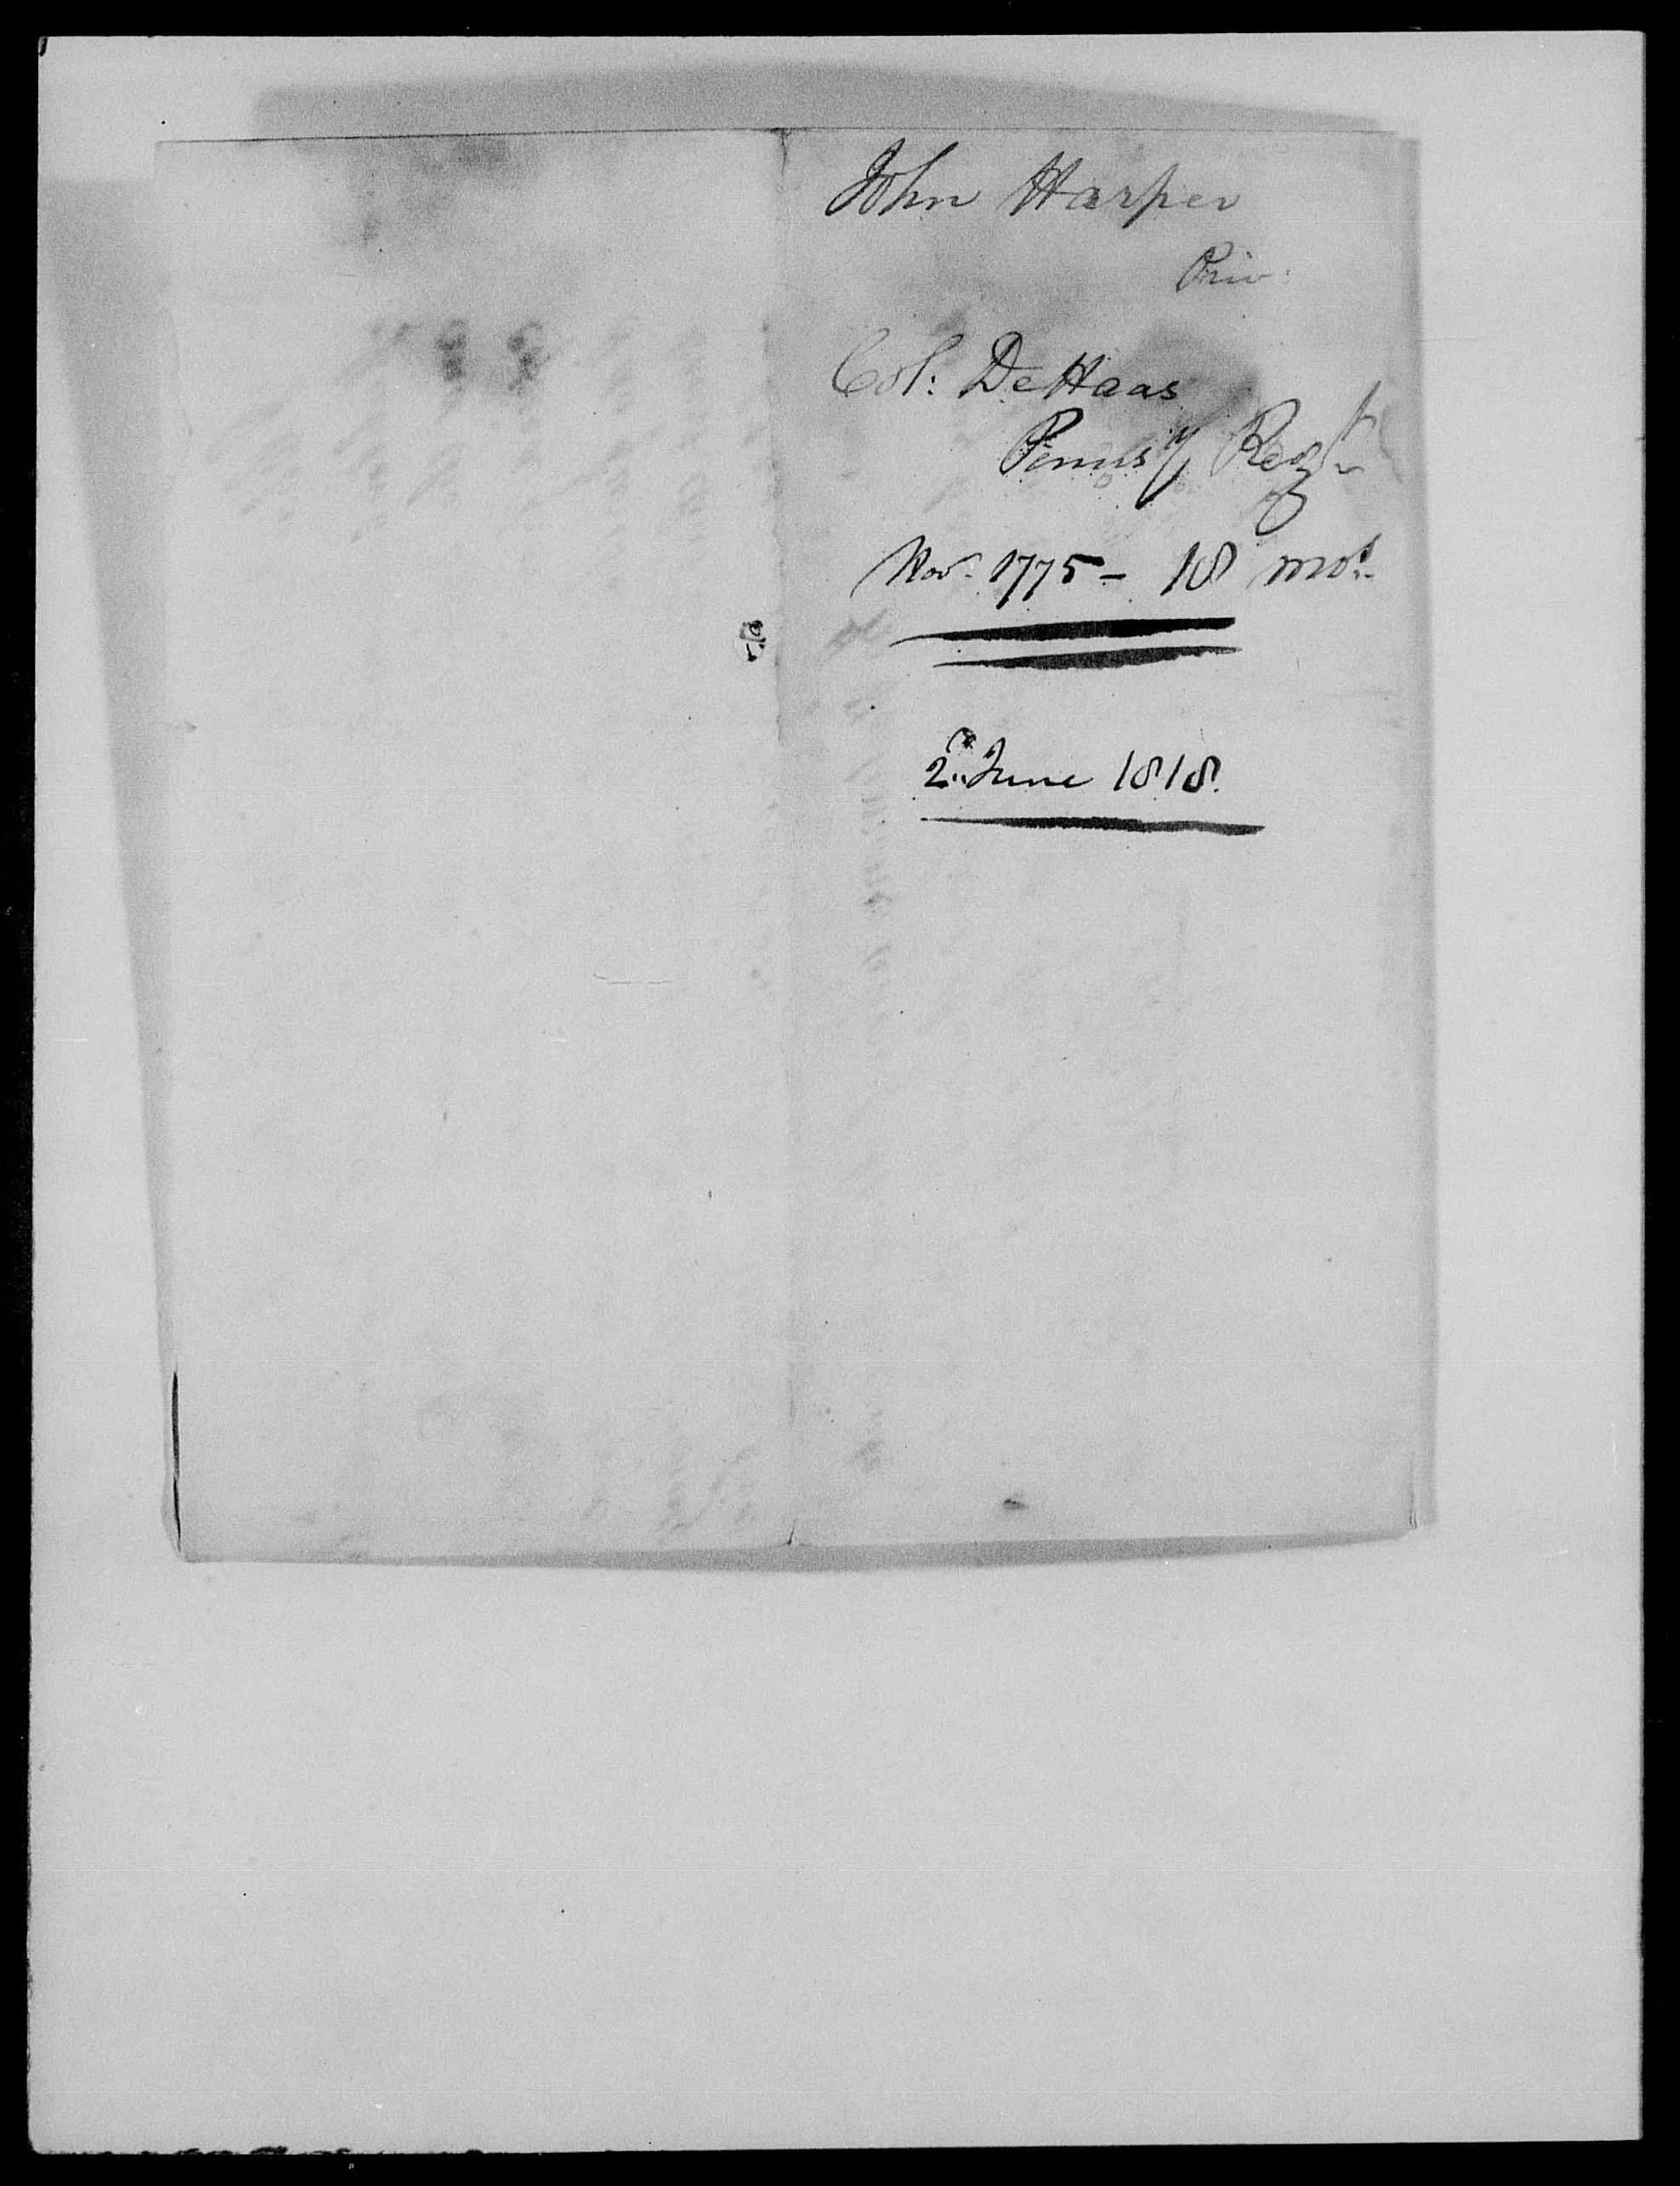 John Harper
Priv:
Col: DeHaas
Pennsy Regt
Nov. 1775 - 18 mos.
2d June 1818.